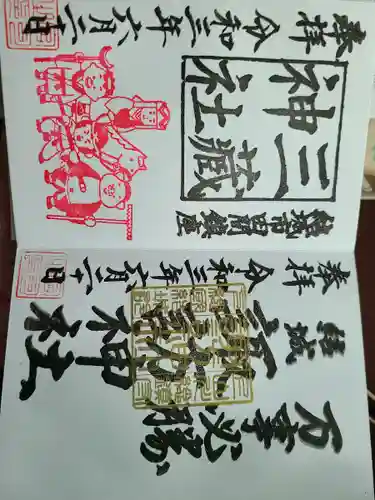 奉拝
令和三年六月二十日
三蔵
神社
結城市田間鎮座
奉拝
結城
三蔵神社
万事必勝
令和三年六月二十日